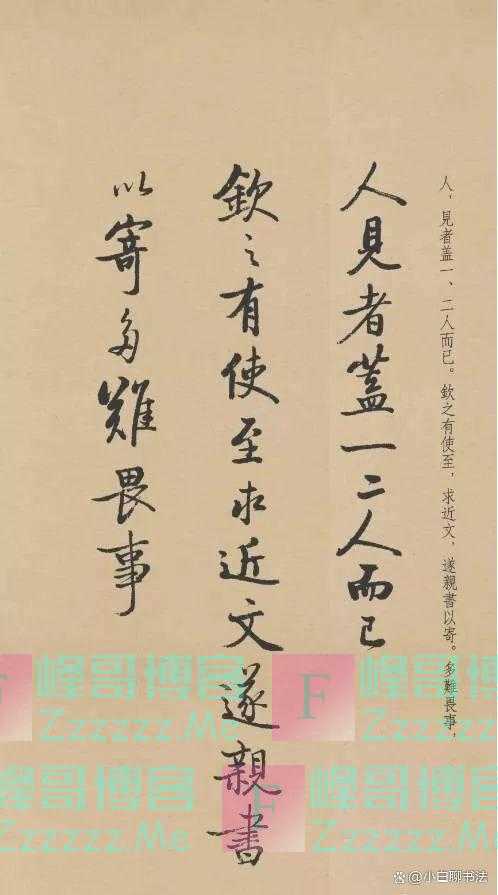 人，見者盖一、二人而已。欽之有使至，求近文，遂親書以寄。多難畏事，
人見者蓋一二人而已
欽之有使至求近文遂親書
以寄多難畏事
峰哥博客
Zzzzzz.Me
F
峰哥博客
Zzzzzz.Me
F
峰哥博客
Zzzzzz.Me
F
峰哥博客
Zzzzzz.Me
@小白聊书法